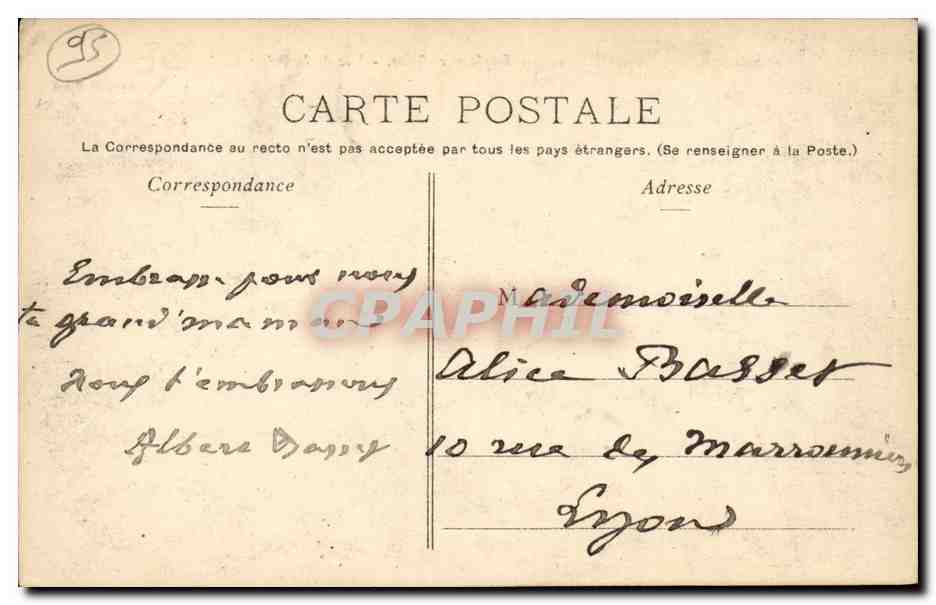 95
CARTE POSTALE
La Correspondance au recto n'est pas acceptée par tous les pays étrangers. (Se renseigner à la Poste.)
Correspondance
Embrasse pour nous
ta grand'maman
Nous t'embrassons
Albert Basset
Adresse
Mademoiselle
Alice Basset
10 rue des Marronniers
Lyon
CPAPHIL